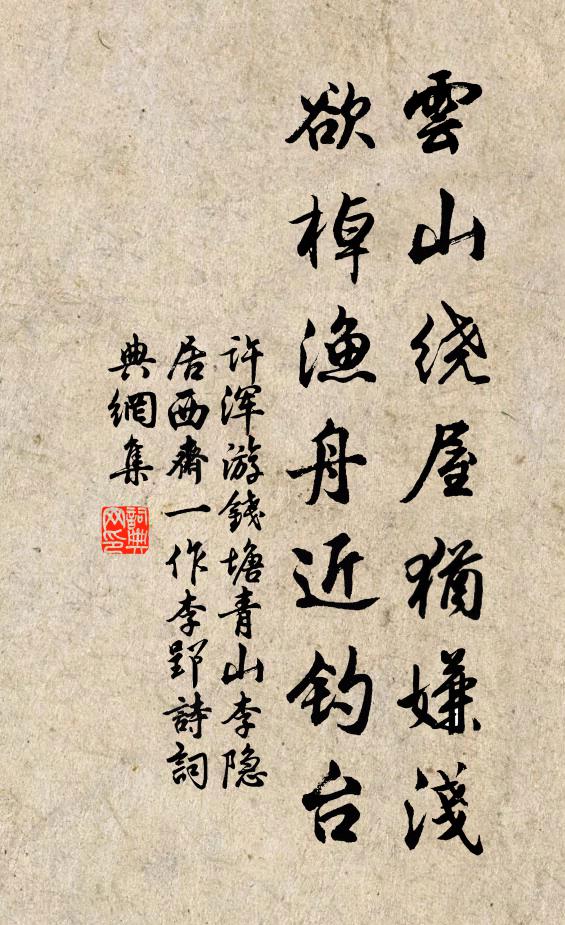 雲山绕屋猶嫌淺
欲棹渔舟近钓台
许浑游錢塘青山李隐
居西齋一作李郢詩詞
典網集
詞典
网印